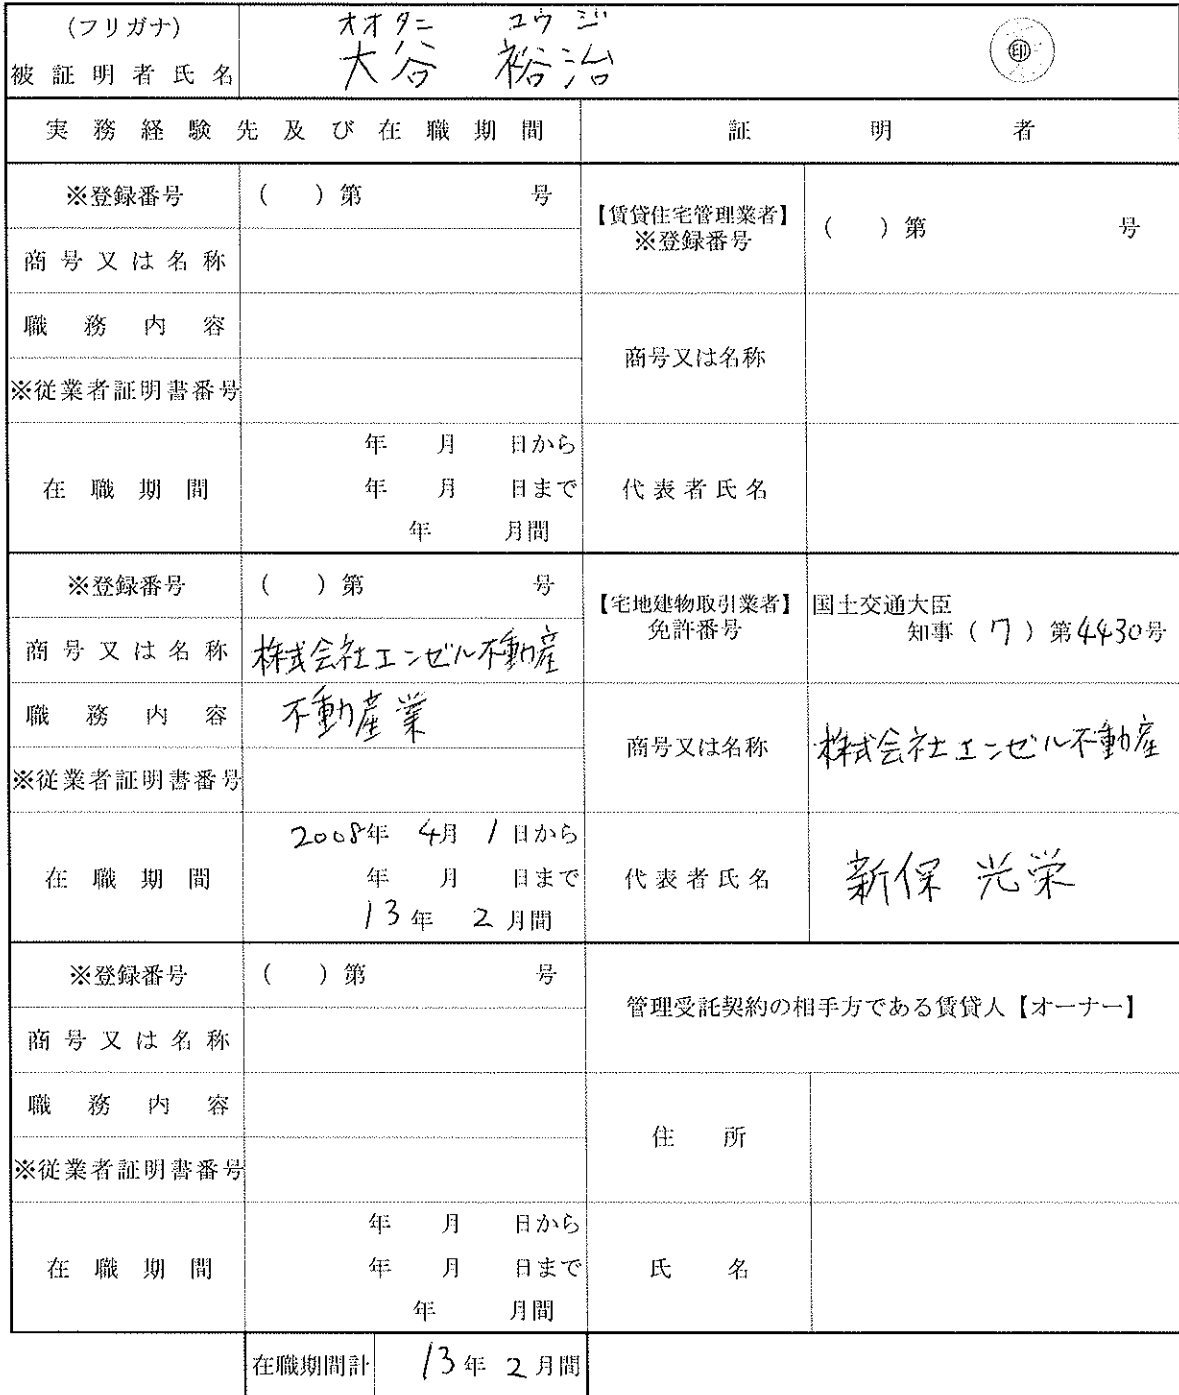 (フリガナ) オオタニ ユウジ
被証明者氏名 大谷 裕治 ㊞
実務経験先及び在職期間 証明者
※登録番号 ( ) 第 号
商号又は名称
職務内容
※従業者証明書番号
在職期間
年 月 日から
年 月 日まで
年 月間
【賃貸住宅管理業者】
※登録番号 ( ) 第 号
商号又は名称
代表者氏名
※登録番号 ( ) 第 号
商号又は名称 株式会社エンゼル不動産
職務内容 不動産業
※従業者証明書番号
在職期間
2008年 4月 1日から
年 月 日まで
13年 2月間
【宅地建物取引業者】
免許番号
国土交通大臣
知事 (7) 第4430号
商号又は名称 株式会社エンゼル不動産
代表者氏名 新保 光栄
※登録番号 ( ) 第 号
商号又は名称
職務内容
※従業者証明書番号
在職期間
年 月 日から
年 月 日まで
年 月間
管理受託契約の相手方である賃貸人【オーナー】
住所
氏名
在職期間計 13年 2月間